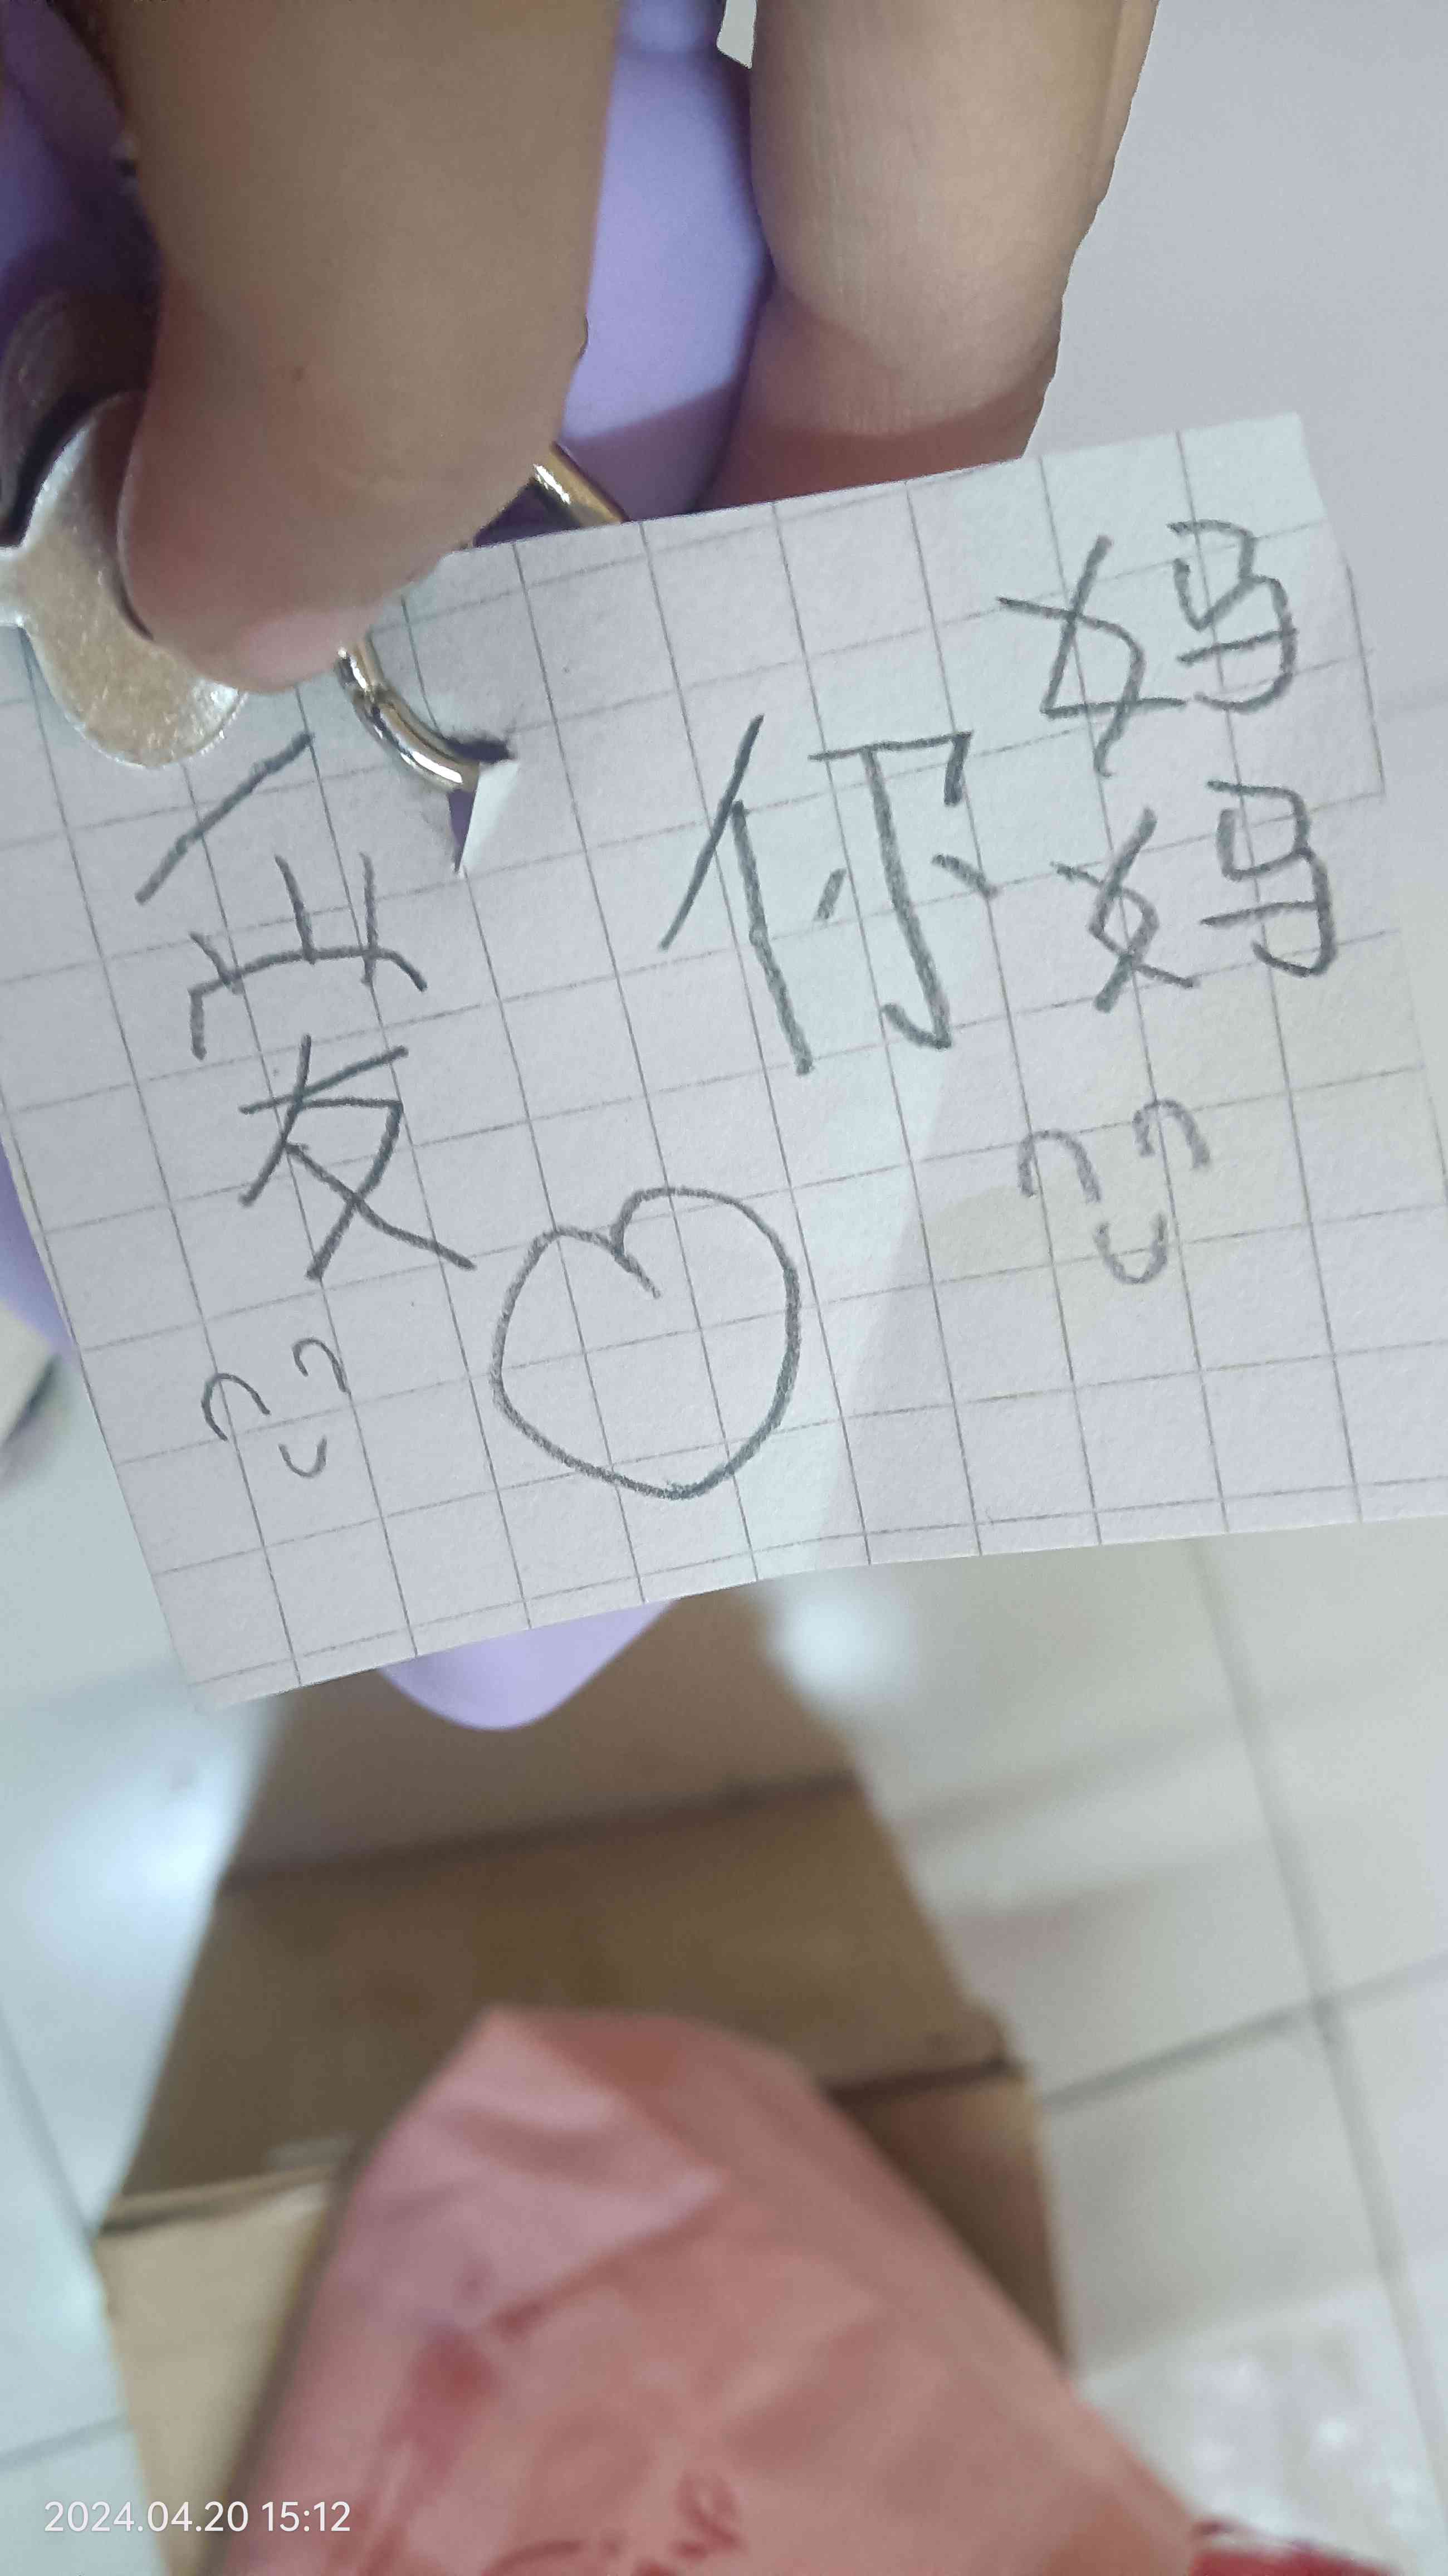 爱你妈妈
2024.04.20 15:12